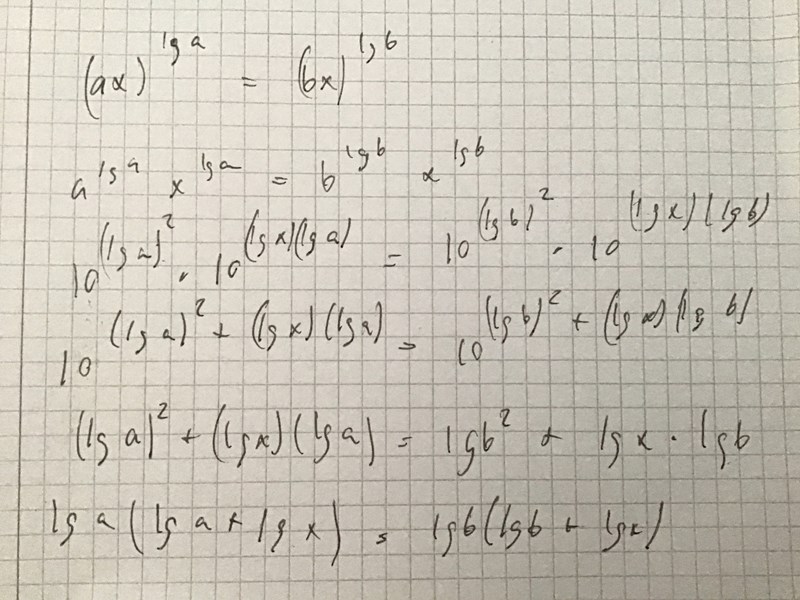 (ax)^{lg a} = (bx)^{lg b}
a^{lg a} x^{lg a} = b^{lg b} x^{lg b}
10^{(lg a)^2} · 10^{(lg x)(lg a)} = 10^{(lg b)^2} · 10^{(lg x)(lg b)}
10^{(lg a)^2 + (lg x)(lg a)} = 10^{(lg b)^2 + (lg x)(lg b)}
(lg a)^2 + (lg x)(lg a) = lg b^2 + lg x · lg b
lg a (lg a + lg x) = lg b (lg b + lg x)